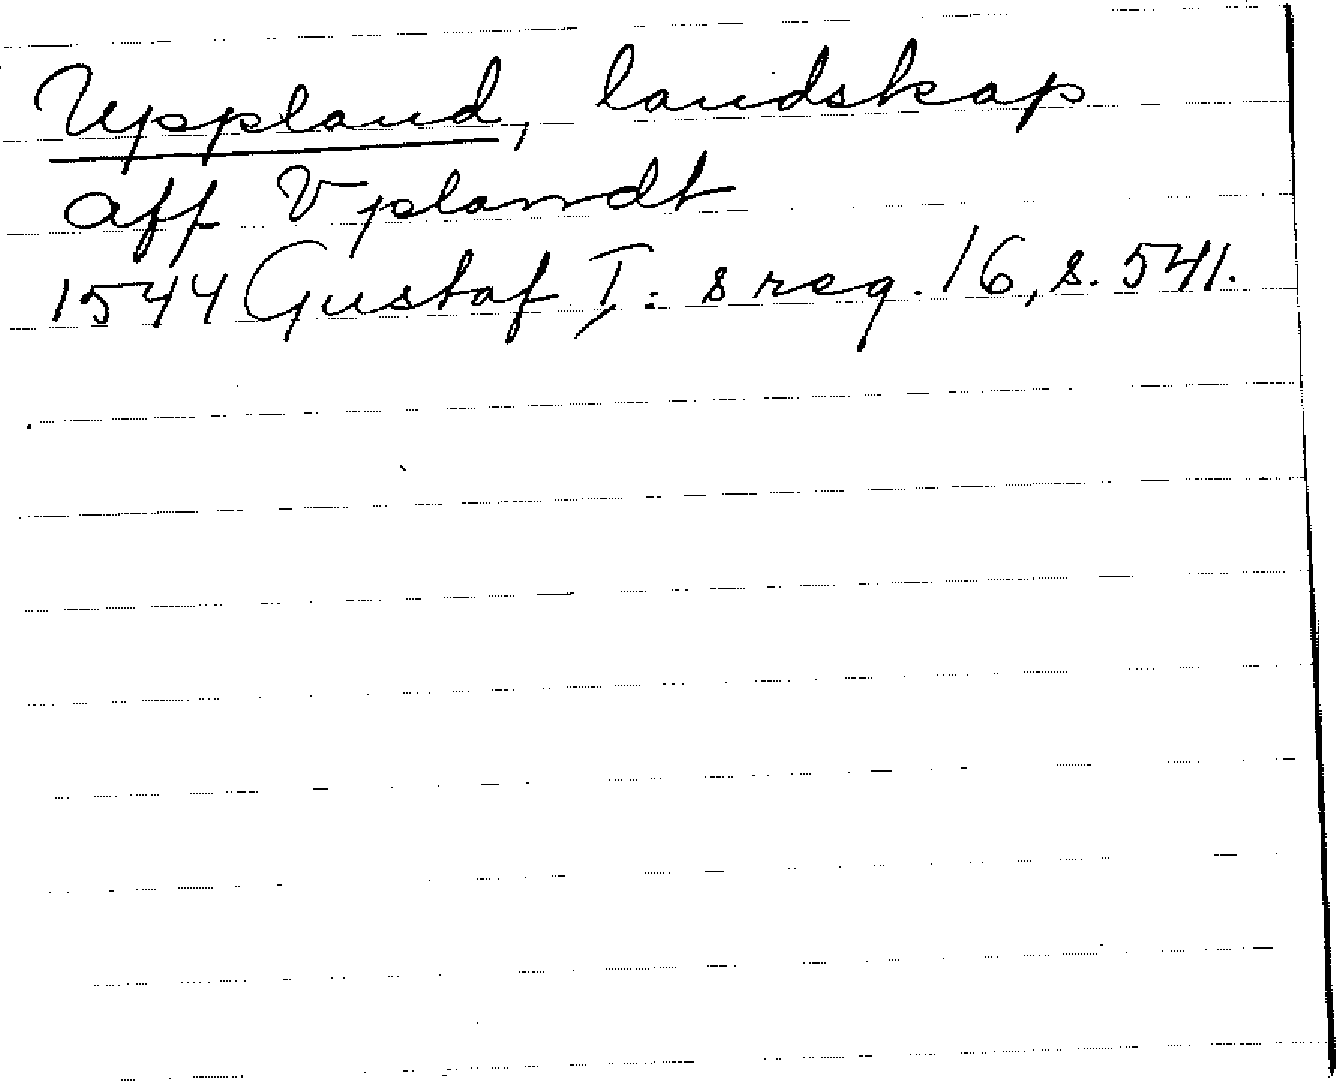 Uppland, landskap
aff Vplandt
1544 Gustaf I:s reg. 16, s. 541.